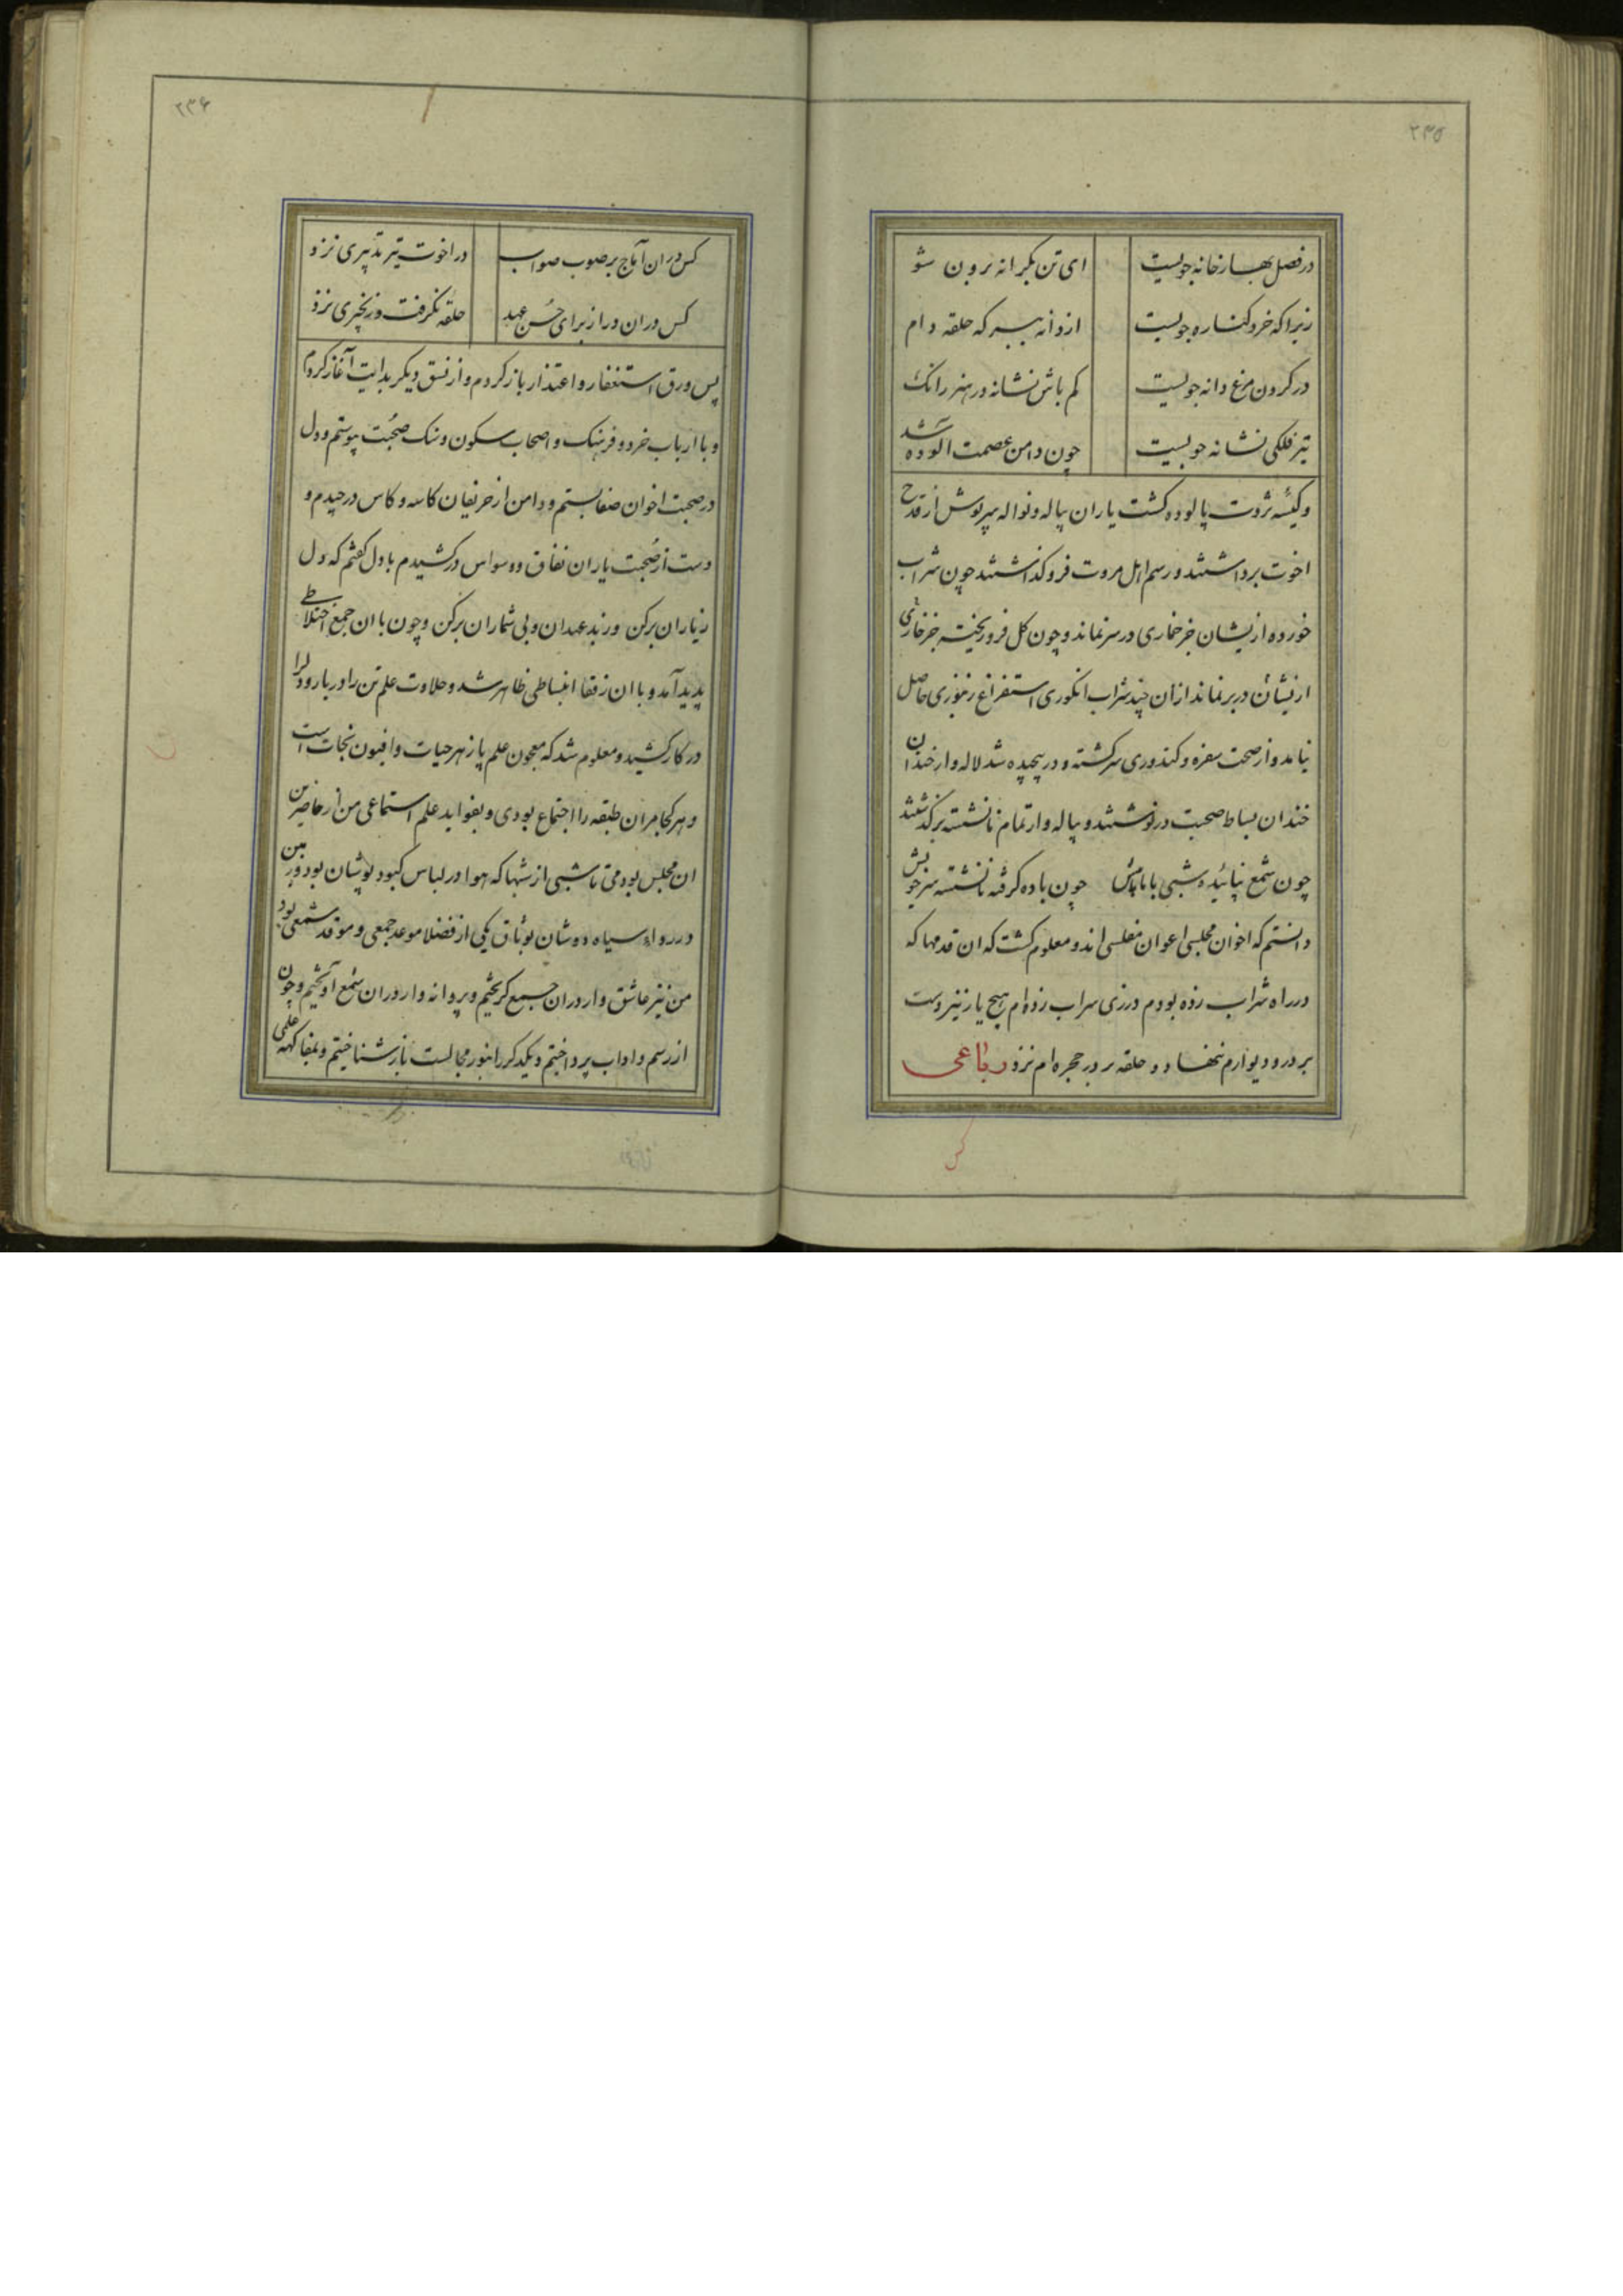 ۲۳۵
در فصل بهار خانه جویست ای تن بکرانه برون شو
زیرا که خرد کناره جویست از دانه ببر که حلقه دام
در کردن مرغ دانه جویست کم باش نشانه در هنر زانک
تیر فلکی نشانه جویست چون دامن عصمت الوده شد
و کیسه ثروت پالوده کشت یاران پیاله و نواله سرپوش از قدح
اخوت برداشتند و رسم اهل مروت فرو کذاشتند چون شراب
خورده از یشان جز خماری در سر نماند و چون کل فرو ریخته جز خاری
ازیشان در بر نماند ازان چند شراب انکوری استفراغ رنجوری حاصل
نیامد و از صحت سفره و کندوری سر کشته و در پیچیده شد لاله وار خندان
خندان بساط صحبت در نوشتند و پیاله وار تمام نانشسته برکذشتند
چون شمع نپائیده شبی با ما پاش چون باده کرفته نانشسته سر جوش
دانستم که اخوان مجلسی اعوان مفلسی اند و معلوم کشت که ان قدمها که
در راه شراب زده بودم در زی سراب زده‌ام هیچ یار نیز دست
بر در و دیوارم ننهاد و حلقه بر در حجره ام نزد رباعی
کس
۲۳۶
کس دران آماج بر صوب صواب در اخوت تیر تدبیری نزد
کس دران در از برای حسن عهد حلقه نکرفت و زنجیری نزد
پس ورق استغفار و اعتذار باز کردم و از نسق دیکر بدایت آغاز کردم
و با ارباب خرد و فرهنک و اصحاب سکون و سنک صحبت پیوستم و دل
در صحبت اخوان صفا بستم و دامن از حریفان کاسه و کاس در چیدم و
دست از صحبت یاران نفاق و وسواس در کشیدم با دل کفتم که دل
زیاران برکن وز بد عهدان و بی شماران برکن و چون با ان جمع اختلاطی
پدید آمد و با ان رفقا انبساطی ظاهر شد و حلاوت علم تن را در بار و دل را
در کار کشید و معلوم شد که معجون علم پازهر حیات و افیون نجات است
و هر کجا مر ان طبقه را اجتماع بودی و بفواید علم استماعی من از حاضرین
ان مجلس بودمی تا شبی از شبها که هوا در لباس کبود پوشان بود و زمین
در رداء سیاه دوشان بوثاق یکی از فضلا موعد جمعی و موقد شمعی بود
من نیز عاشق وار دران جمع کریختم و پروانه وار دران شمع آویختم و چون
از رسم و اداب پرداختم و یکدکر را بنور مجالست باز شناختم و بمفاکهه علمی